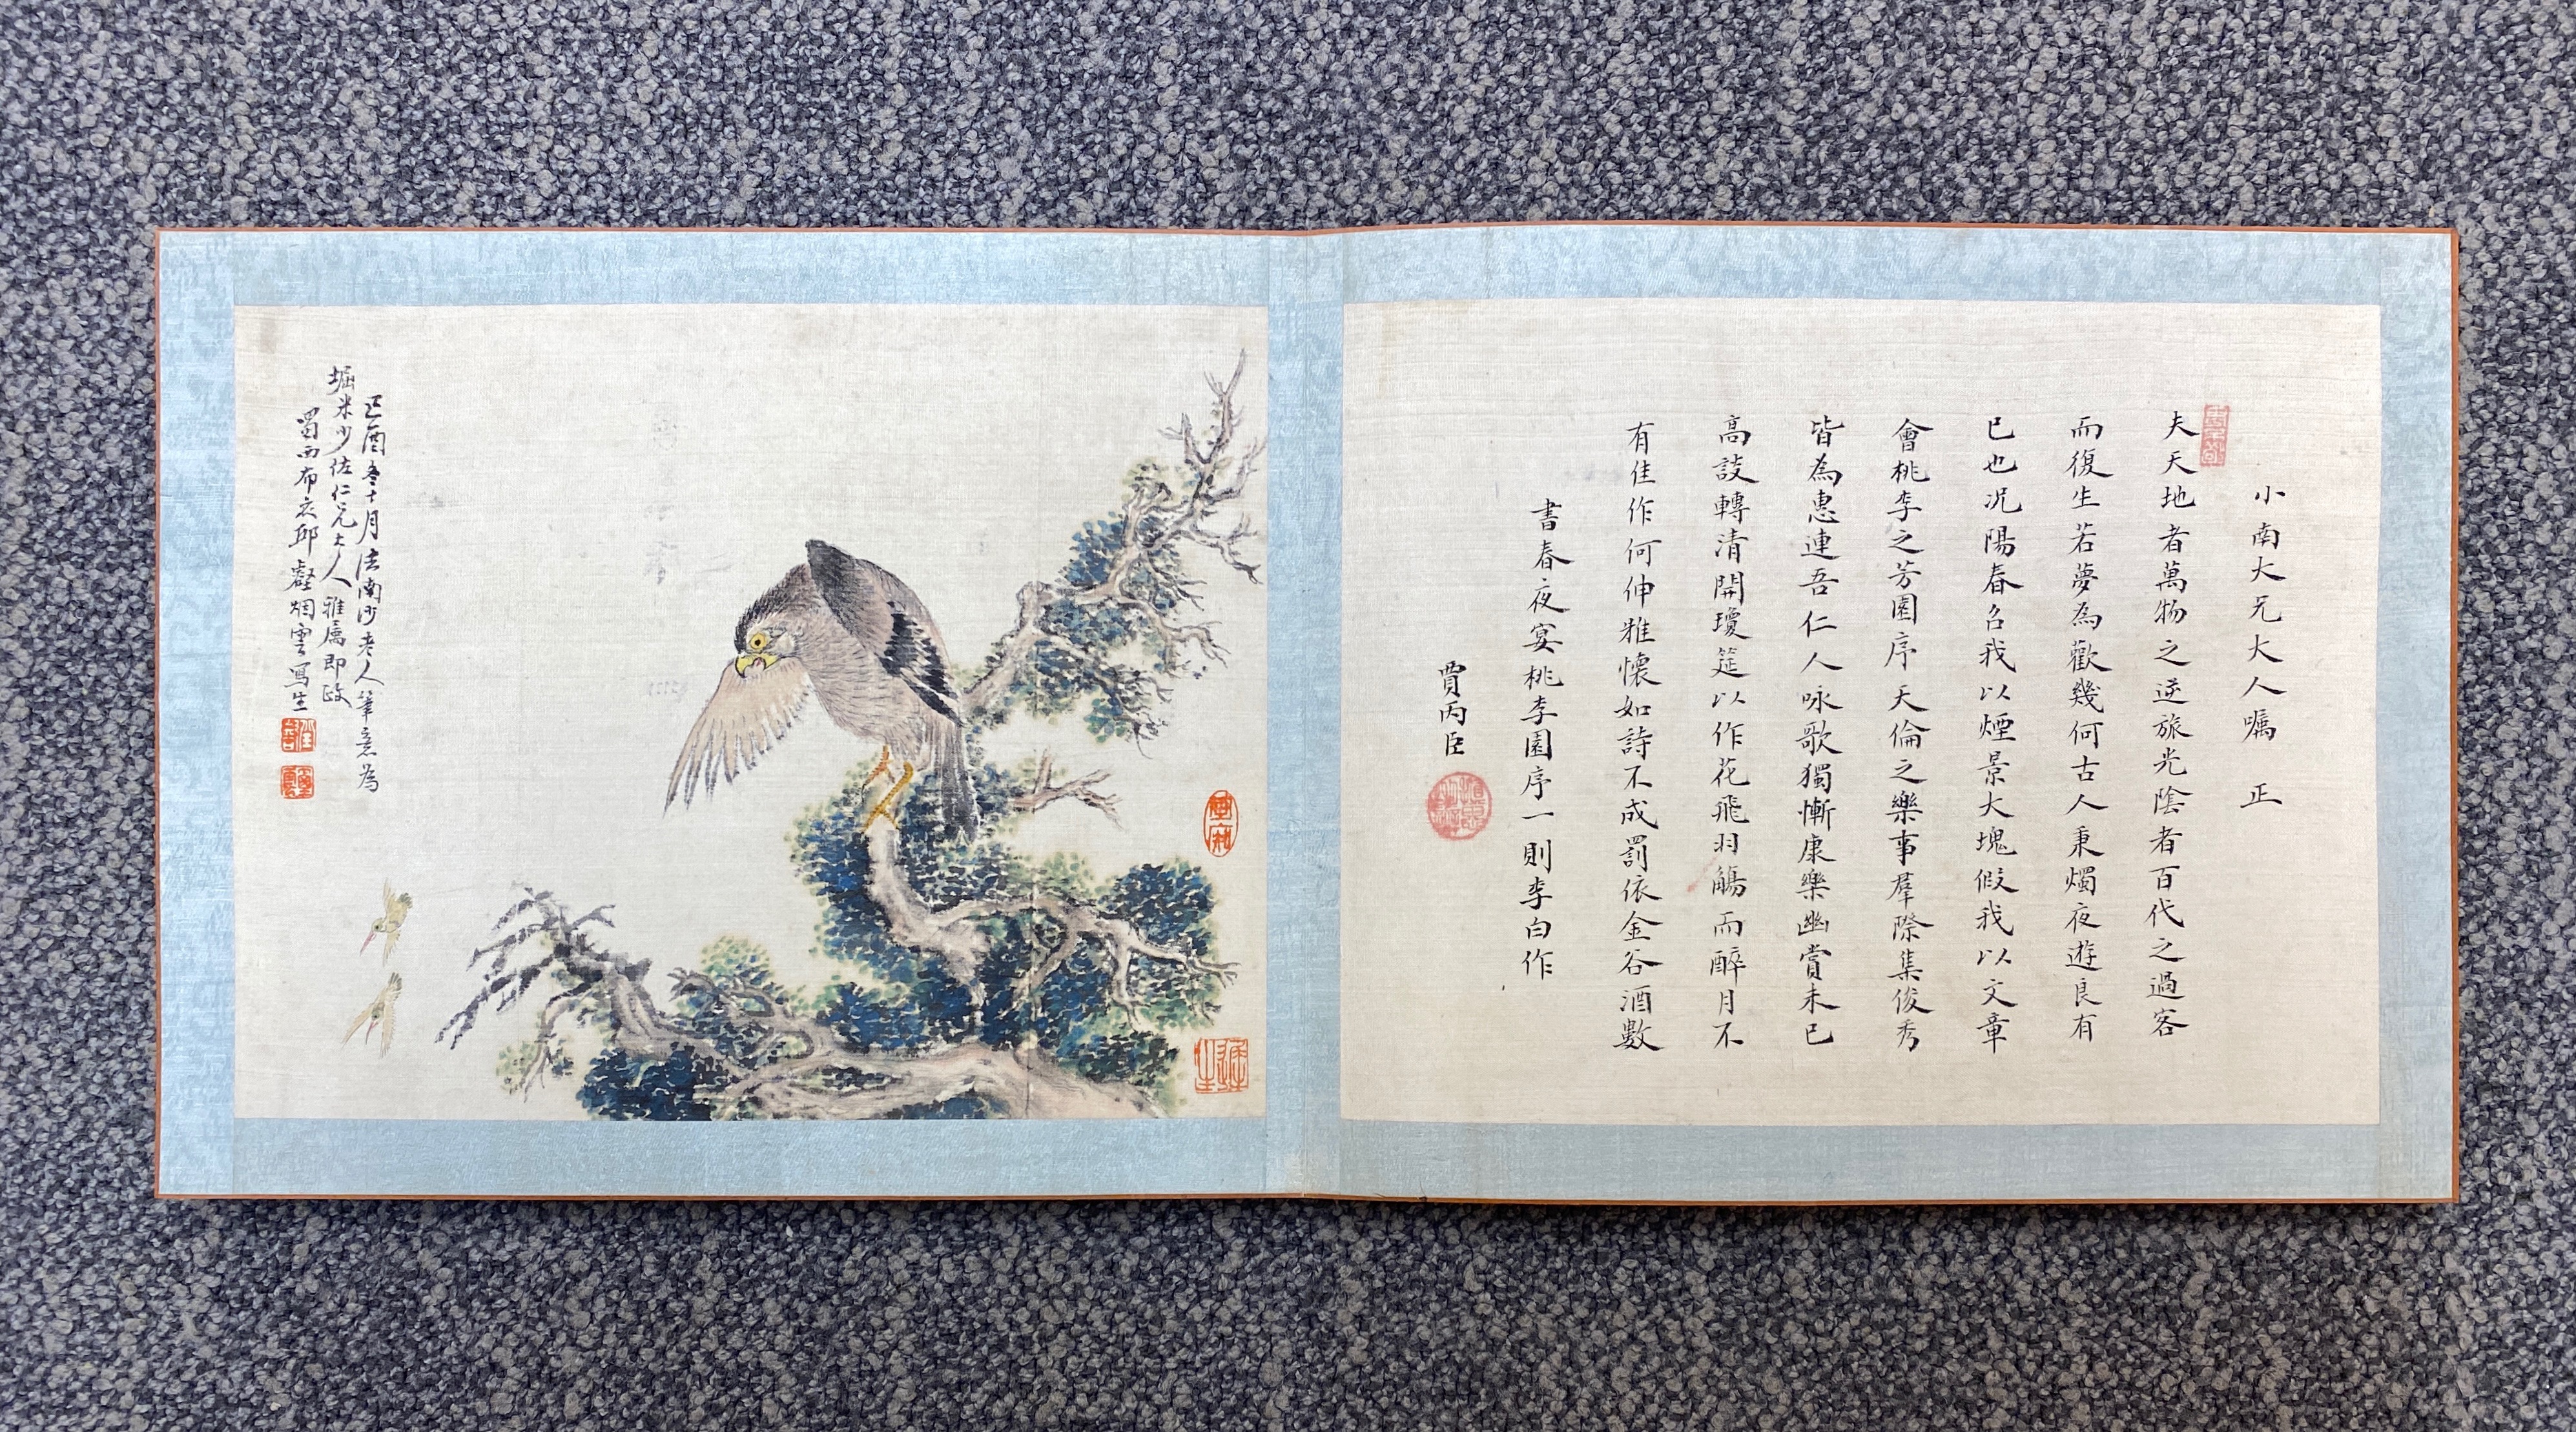 小南大兄大人囑 正
夫天地者萬物之逆旅光陰者百代之過客
而復生若夢為歡幾何古人秉燭夜遊良有
已也況陽春召我以煙景大塊假我以文章
會桃李之芳園序天倫之樂事羣際集俊秀
皆為惠連吾仁人咏歌獨慚康樂幽賞未已
高談轉清開瓊筵以作花飛羽觴而醉月不
有佳作何伸雅懷如詩不成罰依金谷酒數
書春夜宴桃李園序一則李白作
賈丙臣
己酉冬十月法南沙老人筆意為
堀米少佐仁兄大人雅屬即政
蜀西布衣邱壑烟雲寫生